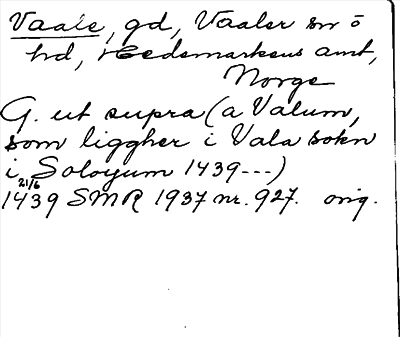 Vaale, gd, Vaaler sn o
hd, Hedemarkens amt,
Norge
G. ut supra (a Valum,
som liggher i Vala sokn
i Soloyum 1439---)
21/6
1439 SMR 1937 nr. 927. orig.